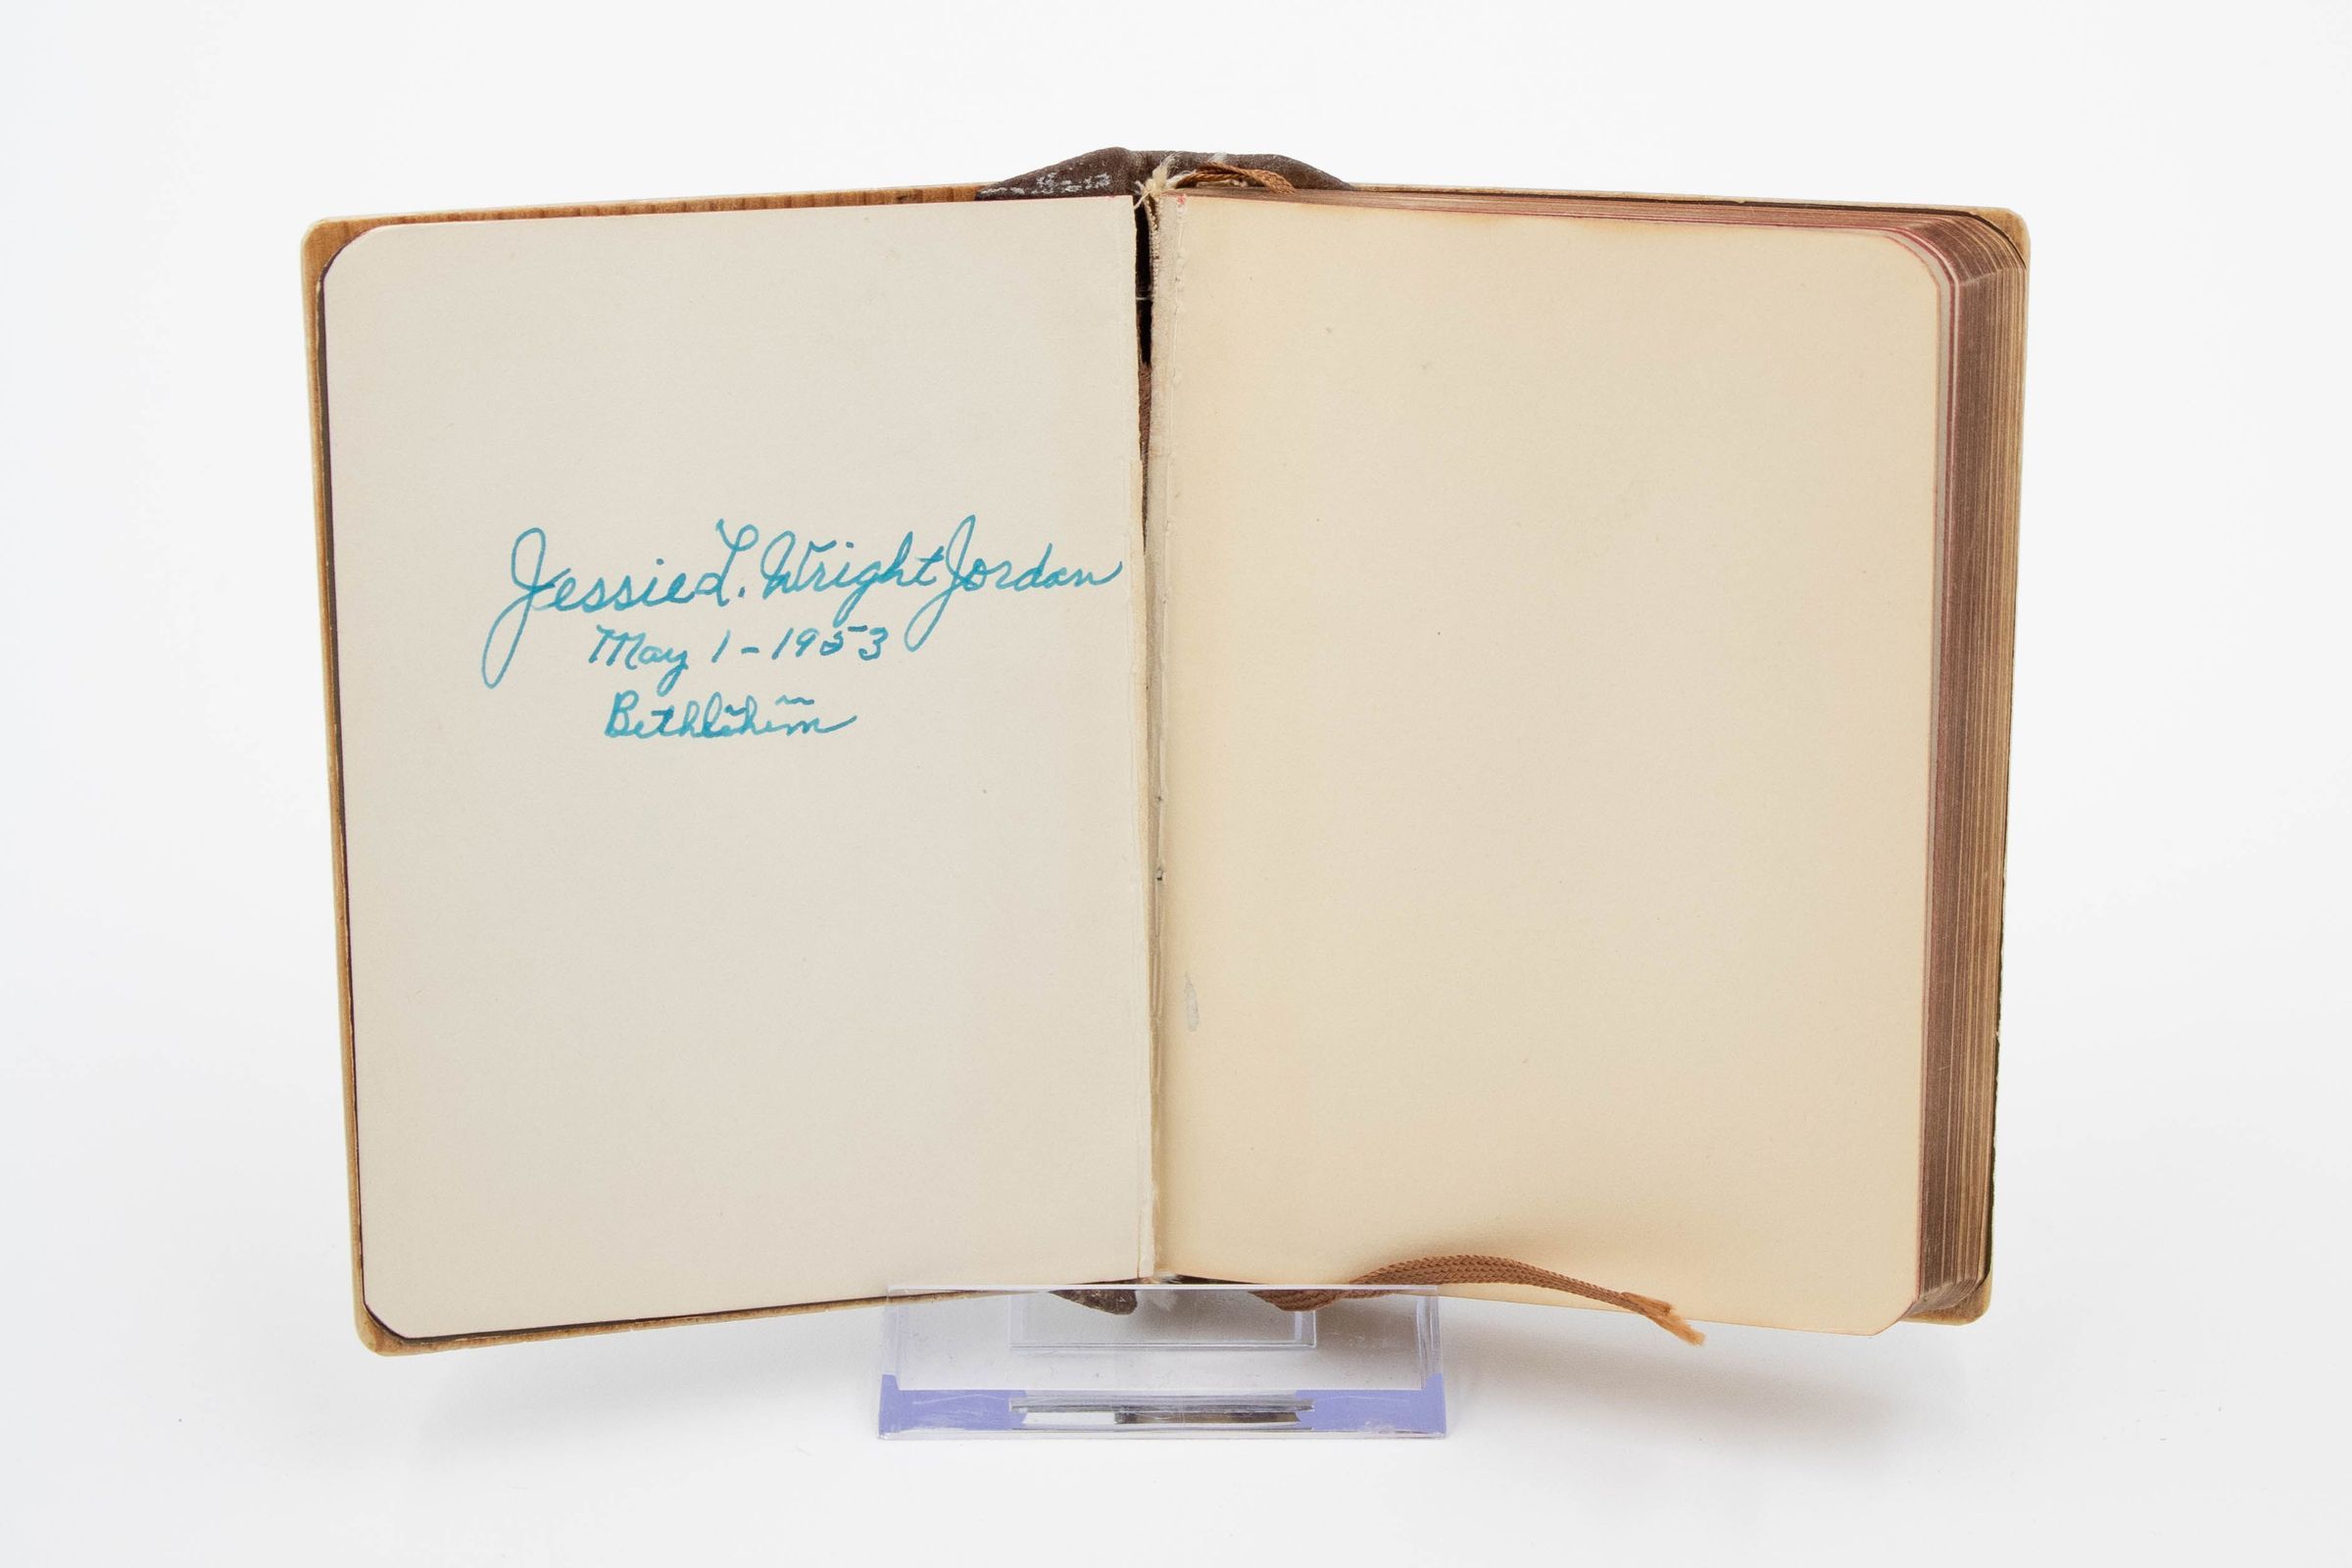 Jessie L. Wright Jordan
May 1 - 1953
Bethlehem